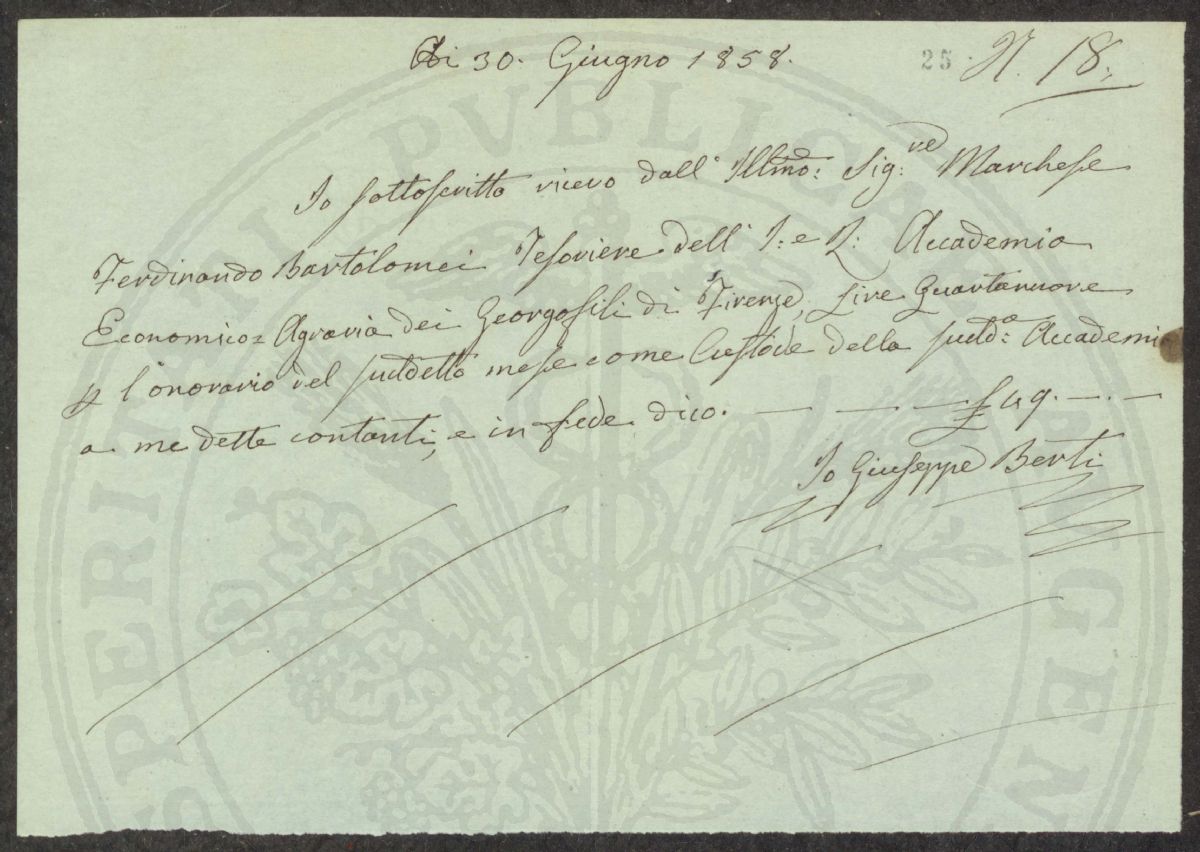 Di 30. Giugno 1858.
25
N. 18.
Io sottoscritto ricevo dall' Illmo: Sig:re Marchese
Ferdinando Bartolomei Tesoriere dell' I: e R: Accademia
Economico= Agraria dei Georgofili di Firenze, Lire Quarantanove
p l'onorario del suddetto mese come Custode della sudda: Accademia
a me dette contanti, e in fede dico. — — — £ 49. — . —
Io Giuseppe Berti
PROSPERITATI PVBLICAE AVGEN